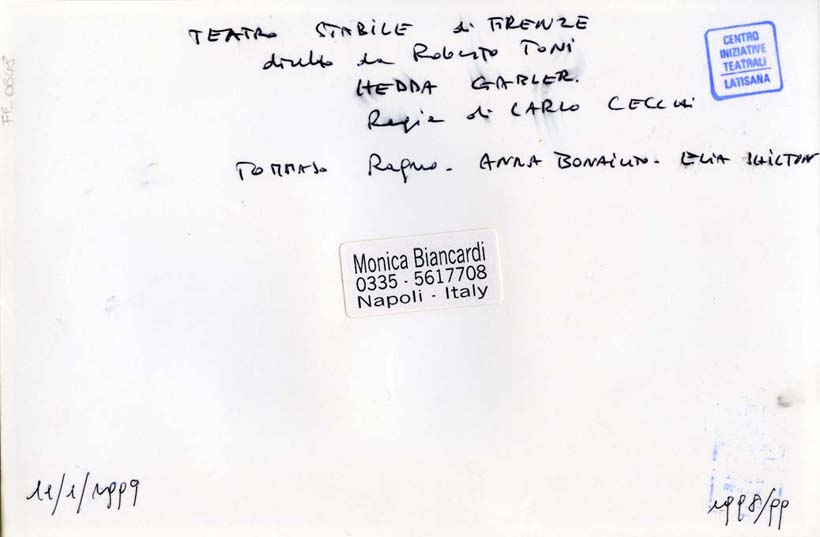 TEATRO STABILE di FIRENZE
diretto da Roberto TONI
HEDDA GABLER.
Regia di CARLO CECCHI
TOMMASO Ragno - ANNA BONAIUTO - ELIA SHILTON
CENTRO
INIZIATIVE
TEATRALI
LATISANA
FF_0648
Monica Biancardi
0335 - 5617708
Napoli - Italy
11/1/1999
1998/99